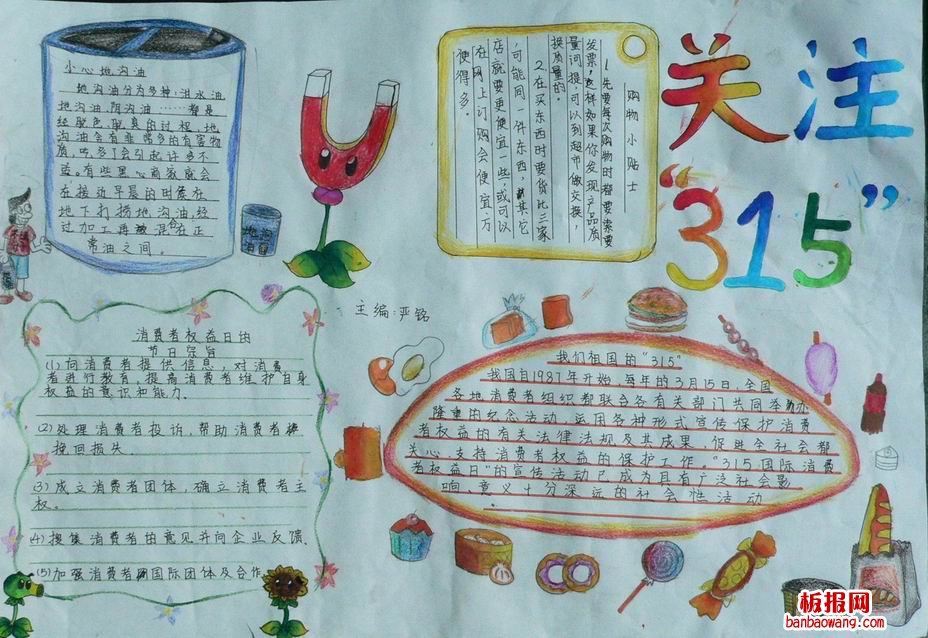 关注
“315”
小心地沟油
地沟油分为多种：泔水油
地沟油、阴沟油……都是
经脱色、脱臭的过程，地
沟油含有非常多的有害物
质，吃多了会引起许多不
益。有些黑心商家就会
在接近早晨的时候在
地下打捞地沟油，经
过加工再 混合在正
常油之间。
地沟油
购物小贴士
1.先要每次购物时都要索要
发票，这样如果你发现产品质
量问提，可以到超市做交换，
换质量的。
2.在买东西时要货比三家
，可能同一件东西，其它
店就要更便宜一些，或可以
在网上订购会便宜、方
便得多。
主编：严铭
消费者权益日的
节日宗旨
(1)向消费者提供信息，对消费
者进行教育，提高消费者维护自身
权益的意识和能力.
(2)处理消费者投诉，帮助消费者
挽回损失.
(3)成立消费者团体，确立消费者主
权。
(4)搜集消费者的意见并向企业反馈.
(5)加强消费者 国际团体及合作
我们祖国的“315”
我国自1987年开始，每年的3月15日，全国
各地消费者组织都联合各有关部门共同举办
隆重的纪念活动，运用各种形式宣传保护消费
者权益的有关法律法规及其成果，促进全社会都
关心、支持消费者权益的保护工作。“315国际消费
者权益日”的宣传活动已成为具有广泛社会影
响、意义十分深远的社会性活动
。
板报网
banbaowang.com